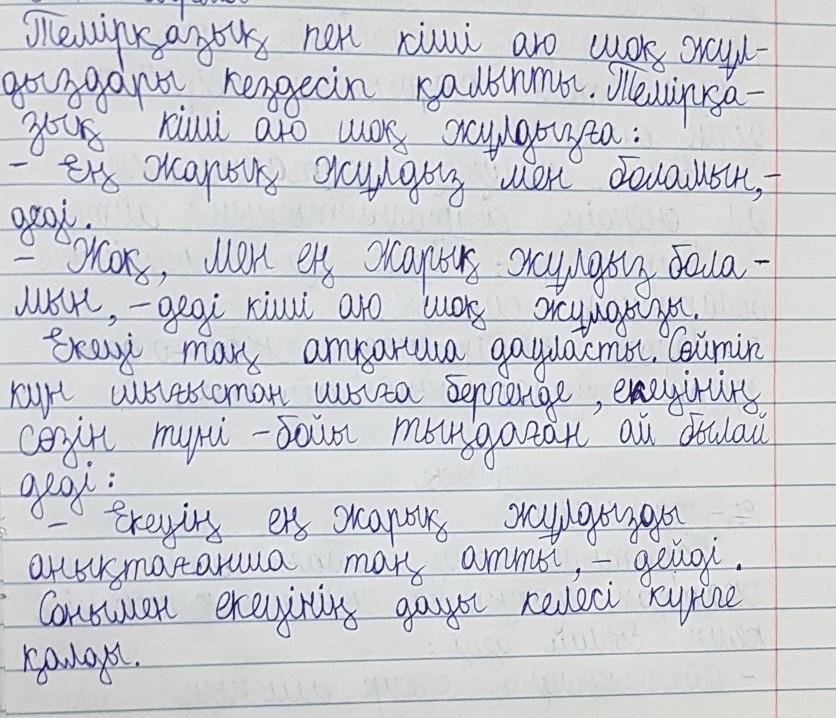 Темірқазық пен кіші аю шоқ жұл-
дыздары кездесіп қалыпты. Темірқа-
зық кіші аю шоқ жұлдызға:
- Ең жарық жұлдыз мен боламын,-
деді.
- Жоқ, мен ең жарық жұлдыз бола-
мын, -деді кіші аю шоқ жұлдызы.
Екеуі таң атқанша дауласты. Сөйтіп
күн шығыстан шыға бергенде, екеуінің
сөзін түні -бойы тыңдаған ай былай
деді:
- Екеуің ең жарық жұлдызды
анықтағанша таң атты, - дейді.
Сонымен екеуінің дауы келесі күнге
қалды.